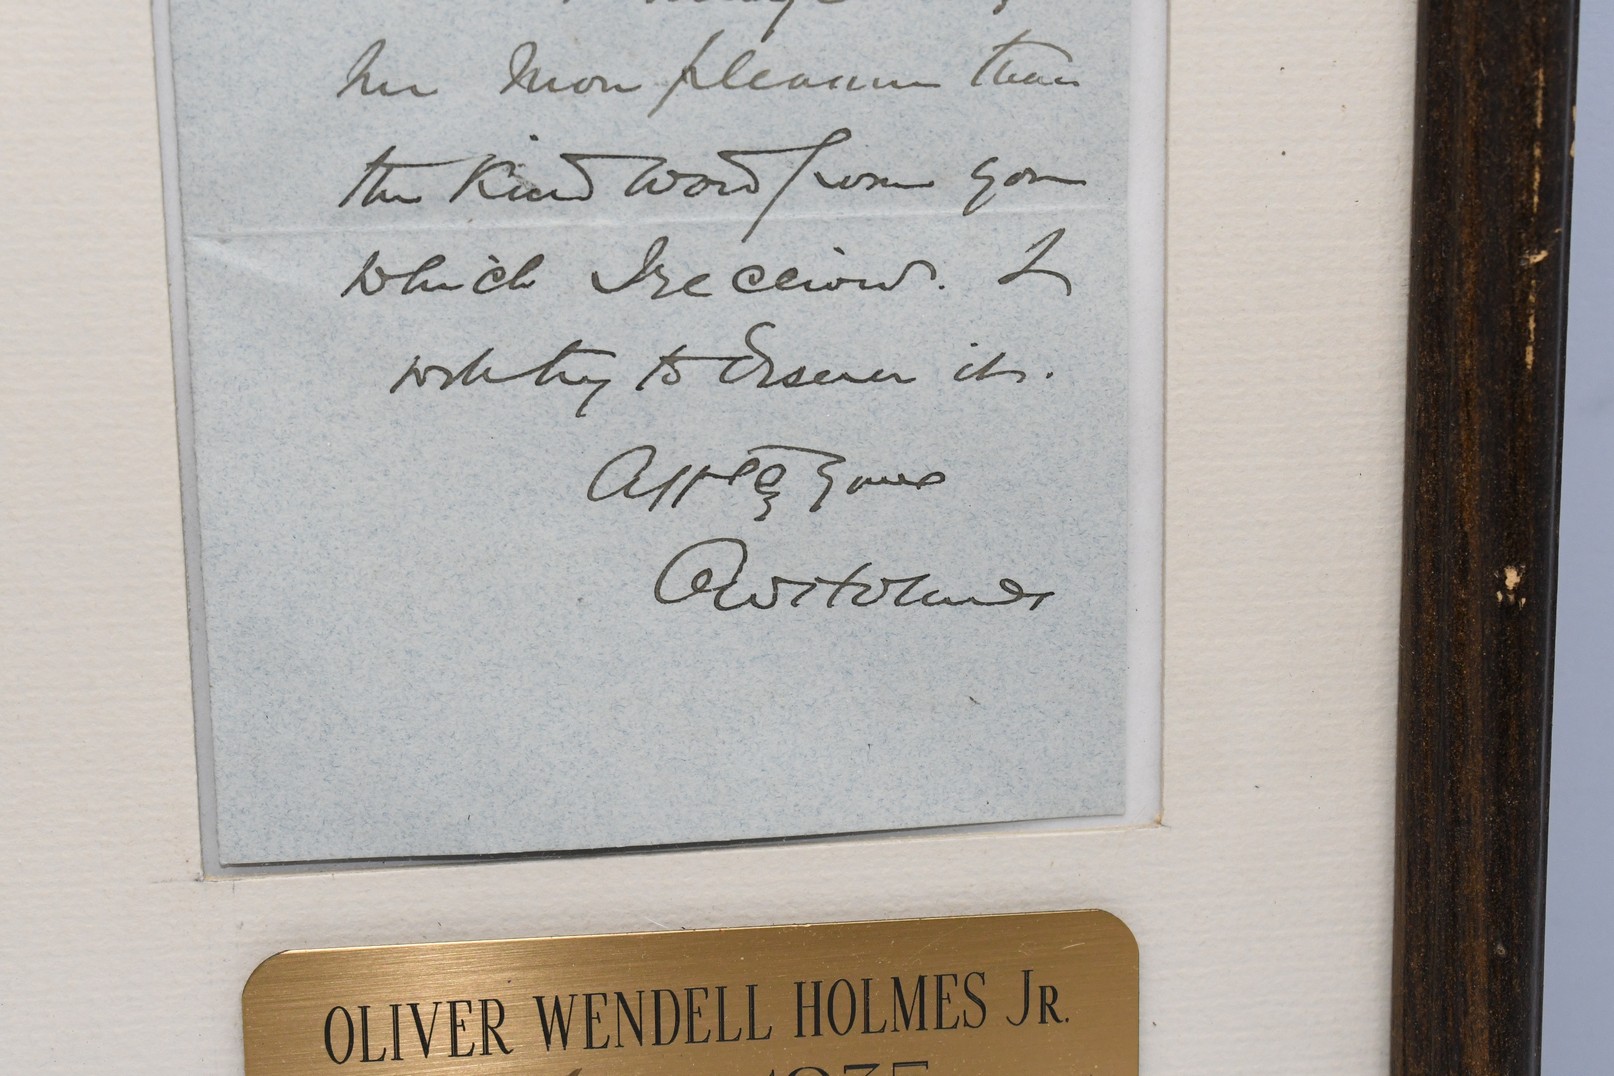 me more pleasure than
the kind word from you
which I received. I
will try to deserve it.
Affly Yours
OWHolmes
OLIVER WENDELL HOLMES JR.
1935